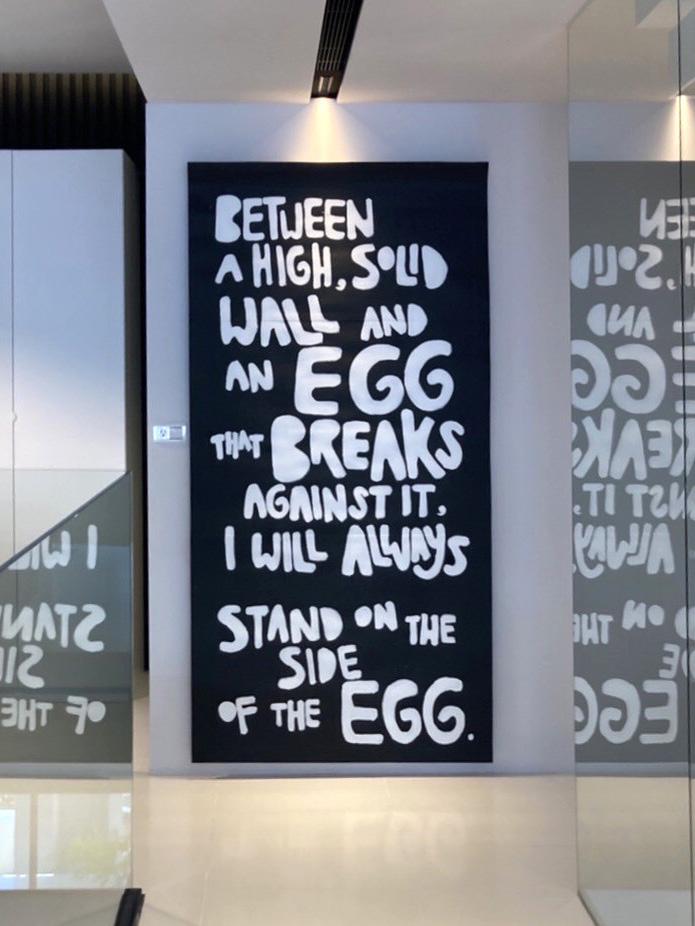 BETWEEN
A HIGH, SOLID
WALL AND
AN EGG
THAT BREAKS
AGAINST IT,
I WILL ALWAYS
STAND ON THE
SIDE
OF THE EGG.